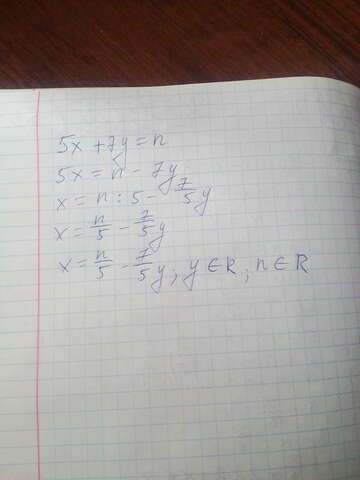 5x + 7y = n
5x = n - 7y
x = n : 5 - 7/5 y
x = n/5 - 7/5 y
x = n/5 - 7/5 y ; y ∈ R ; n ∈ R